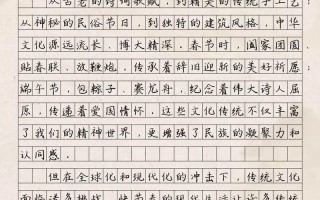 从古老的诗词歌赋，到精美的传统手工艺；
从神秘的民俗节日，到独特的建筑风格，中华
文化源远流长、博大精深。春节时，阖家团圆、
贴春联、放鞭炮，传承着辞旧迎新的美好祈愿；
端午节，包粽子、赛龙舟，纪念着伟大诗人屈
原，传递着爱国情怀。这些文化传统不仅丰富
了我们的精神世界，更增强了民族的凝聚力和
认同感。
但在全球化和现代化的冲击下，传统文化
面临诸多挑战。快节奏的现代生活让许多传统